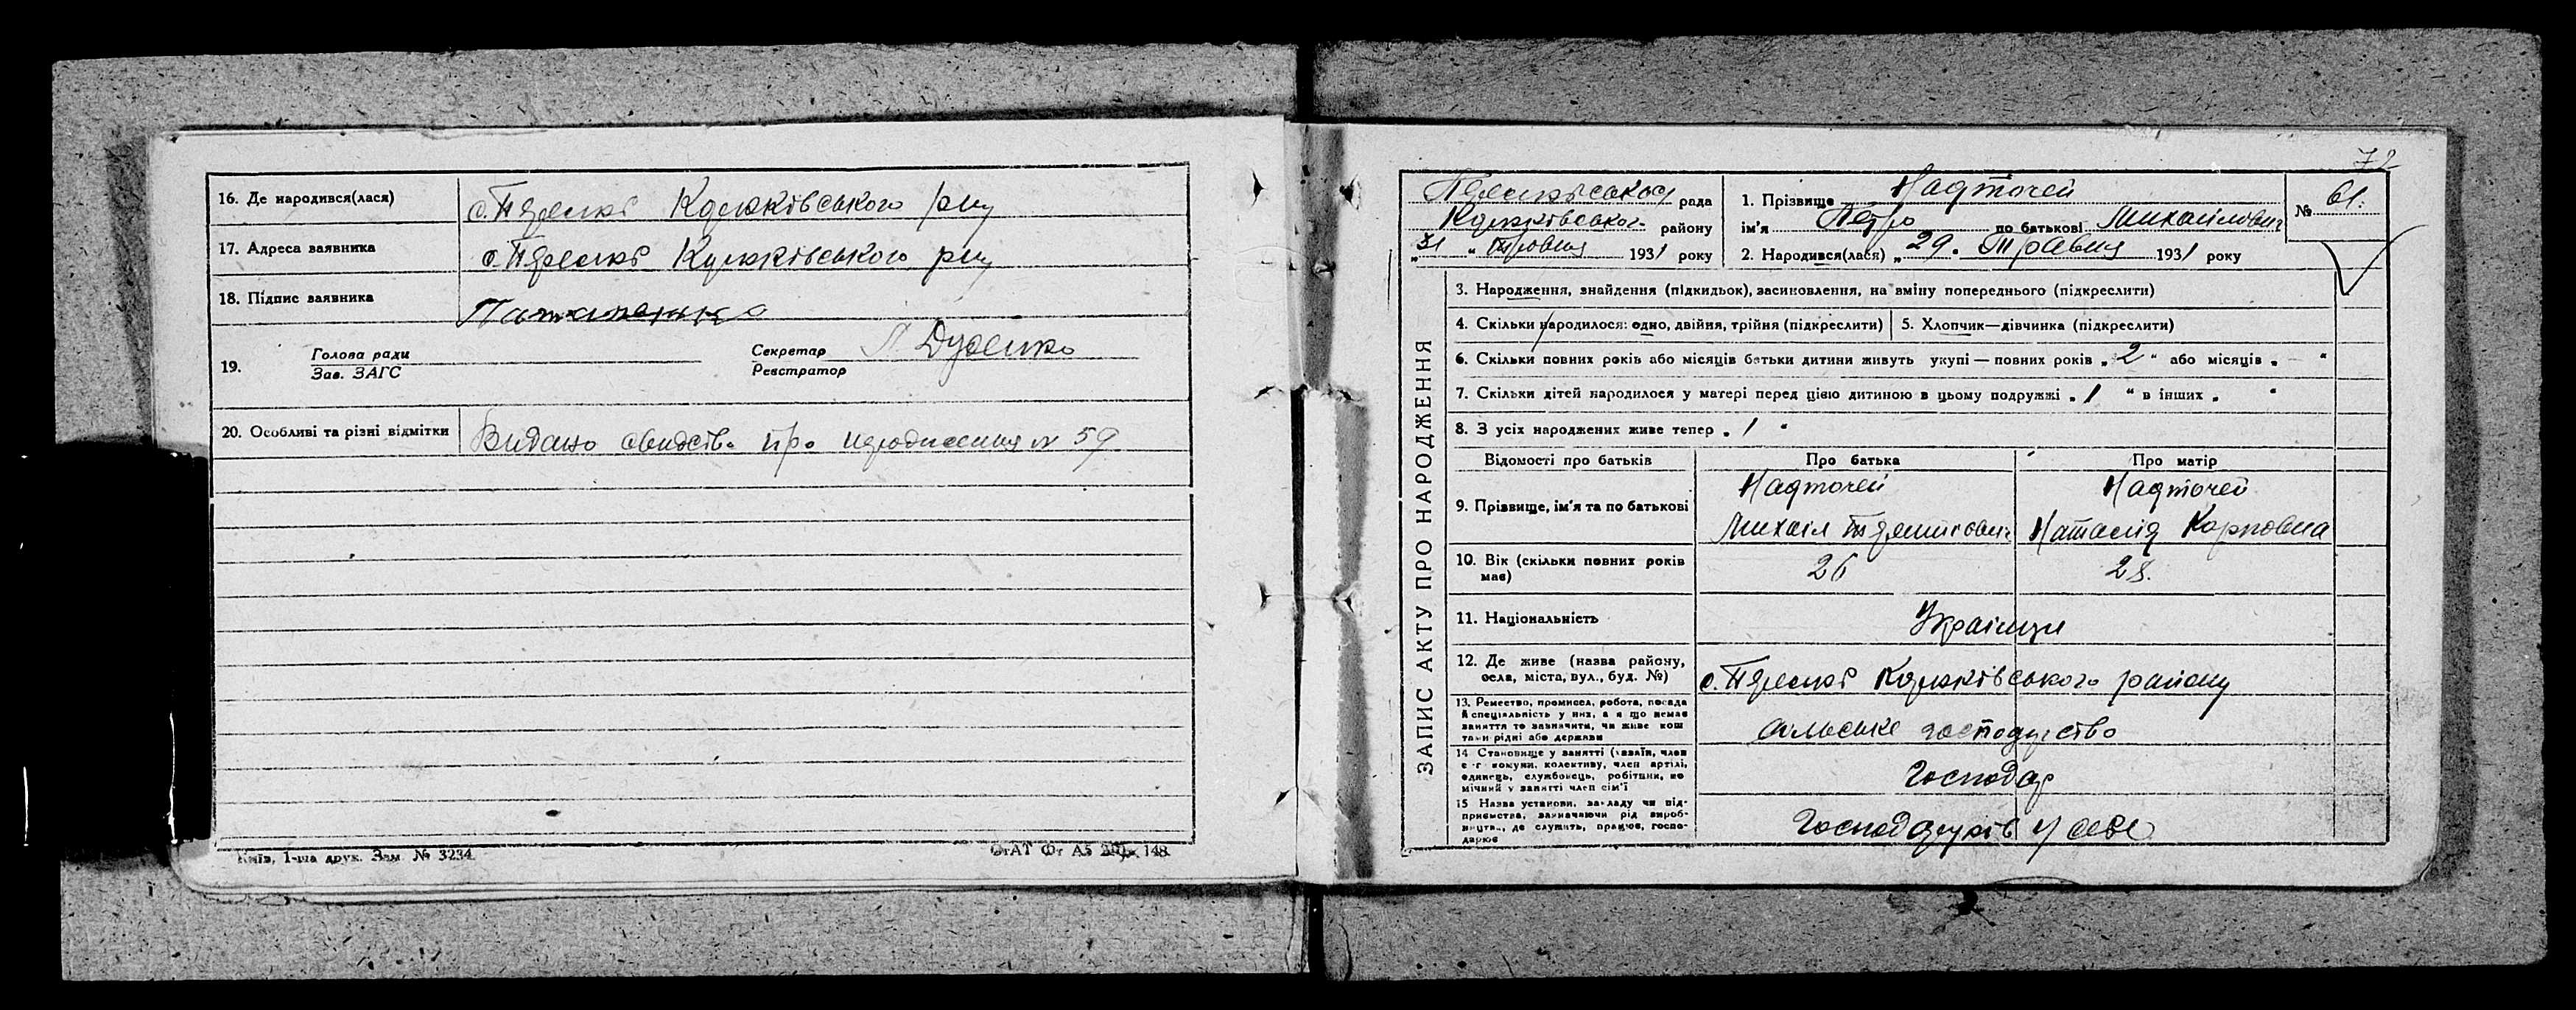 16. Де народився(лася)
Куликівського р-ну
17. Адреса заявника
Куликівського р-ну
18. Підпис заявника
19. Голова ради
Зав. ЗАГС
Секретар
Реєстратор
20. Особливі та різні відмітки
Видано свидєтв. про народження № 59
Київ, 1-ша друк. Зам. № 3234.
72
рада
Куликівського району
„31 " травня 1931 року
1. Прізвище Надточей
ім'я Петро по батькові Михайлович
2. Народився(лася) „29. Травня 1931 року
№ 61.
ЗАПИС АКТУ ПРО НАРОДЖЕННЯ
3. Народження, знайдення (підкидьок), засиновлення, на вміну попереднього (підкреслити)
4. Скільки народилося: одно, двійня, трійня (підкреслити)
5. Хлопчик—дівчинка (підкреслити)
6. Скільки повних років або місяців батьки дитини живуть укупі — повних років „ 2 " або місяців „ — "
7. Скільки дітей народилося у матері перед цією дитиною в цьому подружжі „ 1 " в інших „ "
8. З усіх народжених живе тепер „ 1 "
Відомості про батьків
Про батька
Про матір
9. Прізвище, ім'я та по батькові
Надточей
Михаіл
Надточей
Наталія Карповна
10. Вік (скільки повних років має)
26
28.
11. Національність
Українці
12. Де живе (назва району,
села, міста, вул., буд. №)
Куликівського району
13. Ремество, промисел, робота, посада
й спеціяльність у них, а я що немає
заняття то зазначити, чи живе кош
тами рідні або держави
сільське господарство
14 Становище у занятті (хазяїн, член
с-г комуни, колективу, член артілі,
одинець, службовець, робітник, по
мічний у занятті член сім'ї
Господар
15 Назва установи, закладу чи під-
приємства, зазначаючи рід вироб-
ництва, де служить, працює, госпо-
дарює
у себе